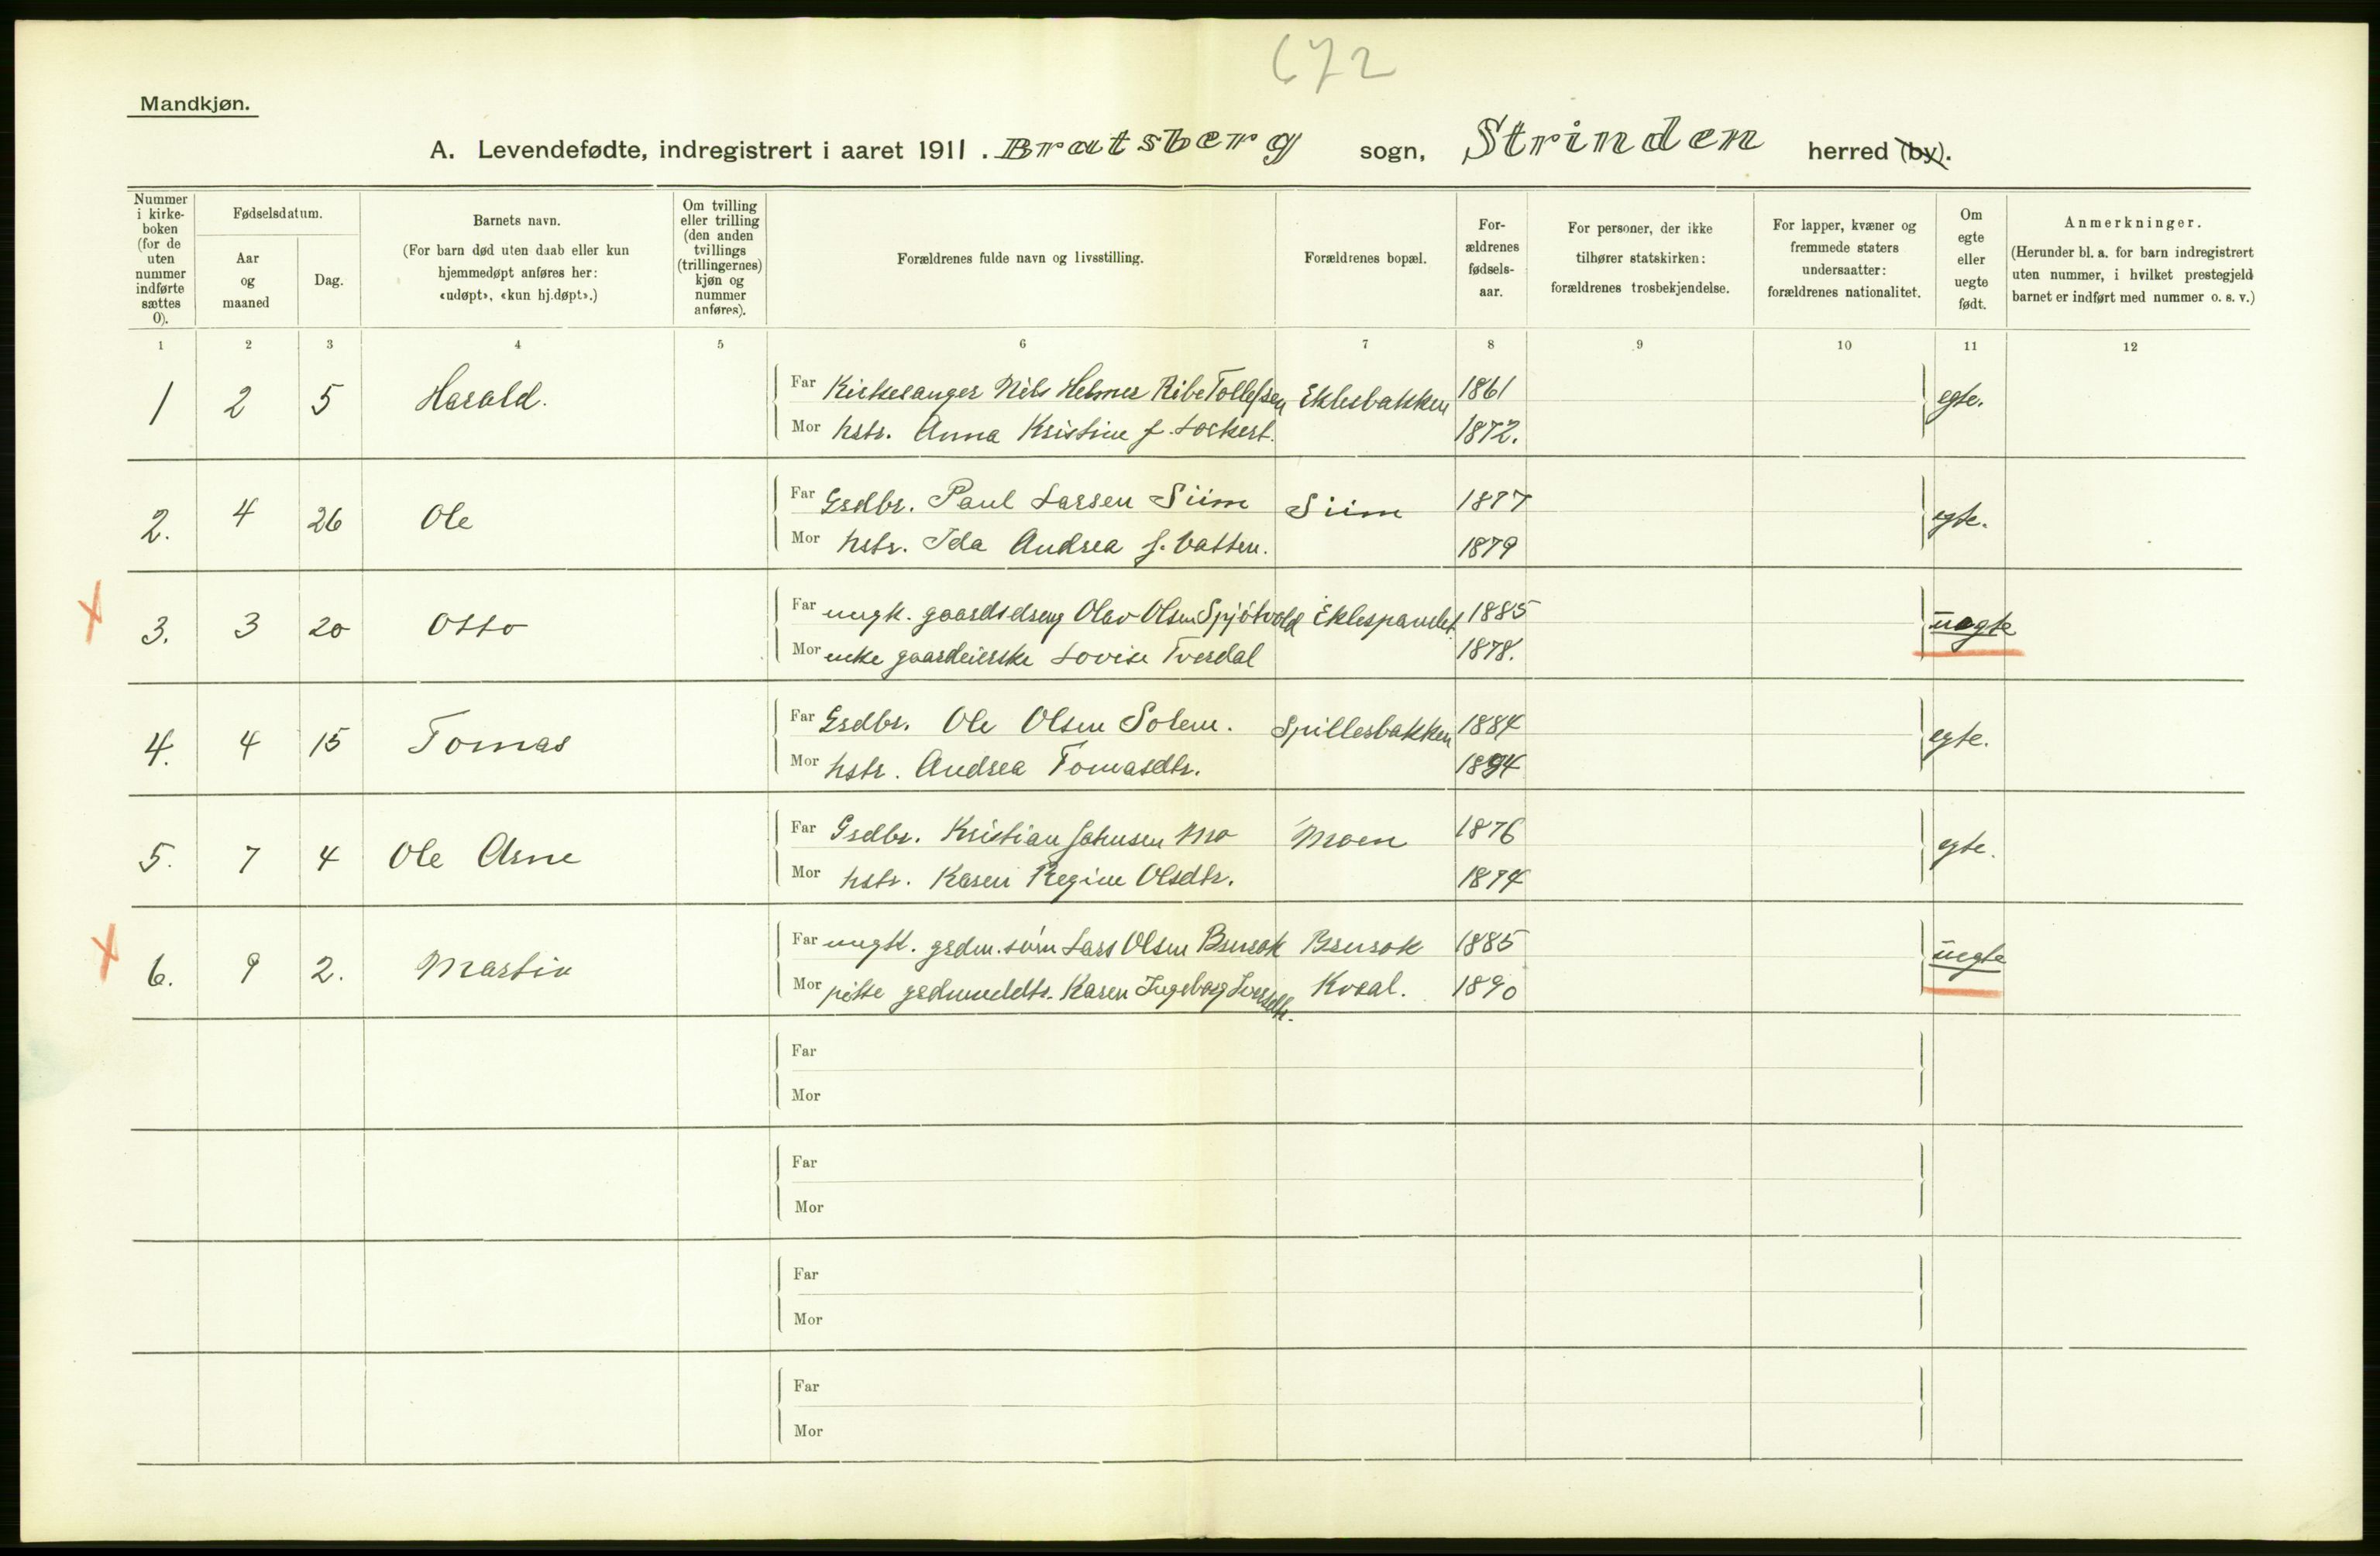 672
Mandkjøn.
A. Levendefødte, indregistrert i aaret 1911. Bratsberg sogn, Strinden herred (by).
Nummer i kirke-boken (for de uten nummer indførte sættes 0).
Fødselsdatum.
Aar og maaned
Dag.
Barnets navn.
(For barn død uten daab eller kun hjemmedøpt anføres her: «udøpt», «kun hj.døpt».)
Om tvilling eller trilling (den anden tvillings (trillingernes) kjøn og nummer anføres).
Forældrenes fulde navn og livsstilling.
Forældrenes bopæl.
For-ældrenes fødsels-aar.
For personer, der ikke tilhører statskirken: forældrenes trosbekjendelse.
For lapper, kvæner og fremmede staters undersaatter: forældrenes nationalitet.
Om egte eller uegte født.
Anmerkninger.
(Herunder bl. a. for barn indregistrert uten nummer, i hvilket prestegjeld barnet er indført med nummer o. s. v.)
1 2 3 4 5 6 7 8 9 10 11 12
1 2 5 Harald. Far Kirkesanger Nils Helmer Ribe Tollefsen Eklesbakken 1861 egte.
Mor hstr. Anna Kristine f. Lockert. 1872.
2. 4 26 Ole Far Grdbr. Paul Larsen Siim Siim 1877 egte.
Mor hstr. Ida Andrea f. Vatten. 1879
3. 3 20 Otto Far ungk. Olav Olsen Spjøtvold 1885 uegte
Mor enke gaardeierske Lovise Tverdal 1878.
4. 4 15 Tomas Far Grdbr. Ole Olsen Solem. Spillesbakken 1884 egte.
Mor hstr. Andrea Tomasdtr. 1884
5. 7 4 Ole Arne Far Grdbr. Kristian Johnsen Mo Moen 1876 egte.
Mor hstr. Karen Regine Olsdtr. 1874
6. 9 2. Martin Far ungk. grdm. søn Lars Olsen Brurok Brurok 1885 uegte
Mor pike Karen Ingeborg Kvaal. 1890
Far
Mor
Far
Mor
Far
Mor
Far
Mor